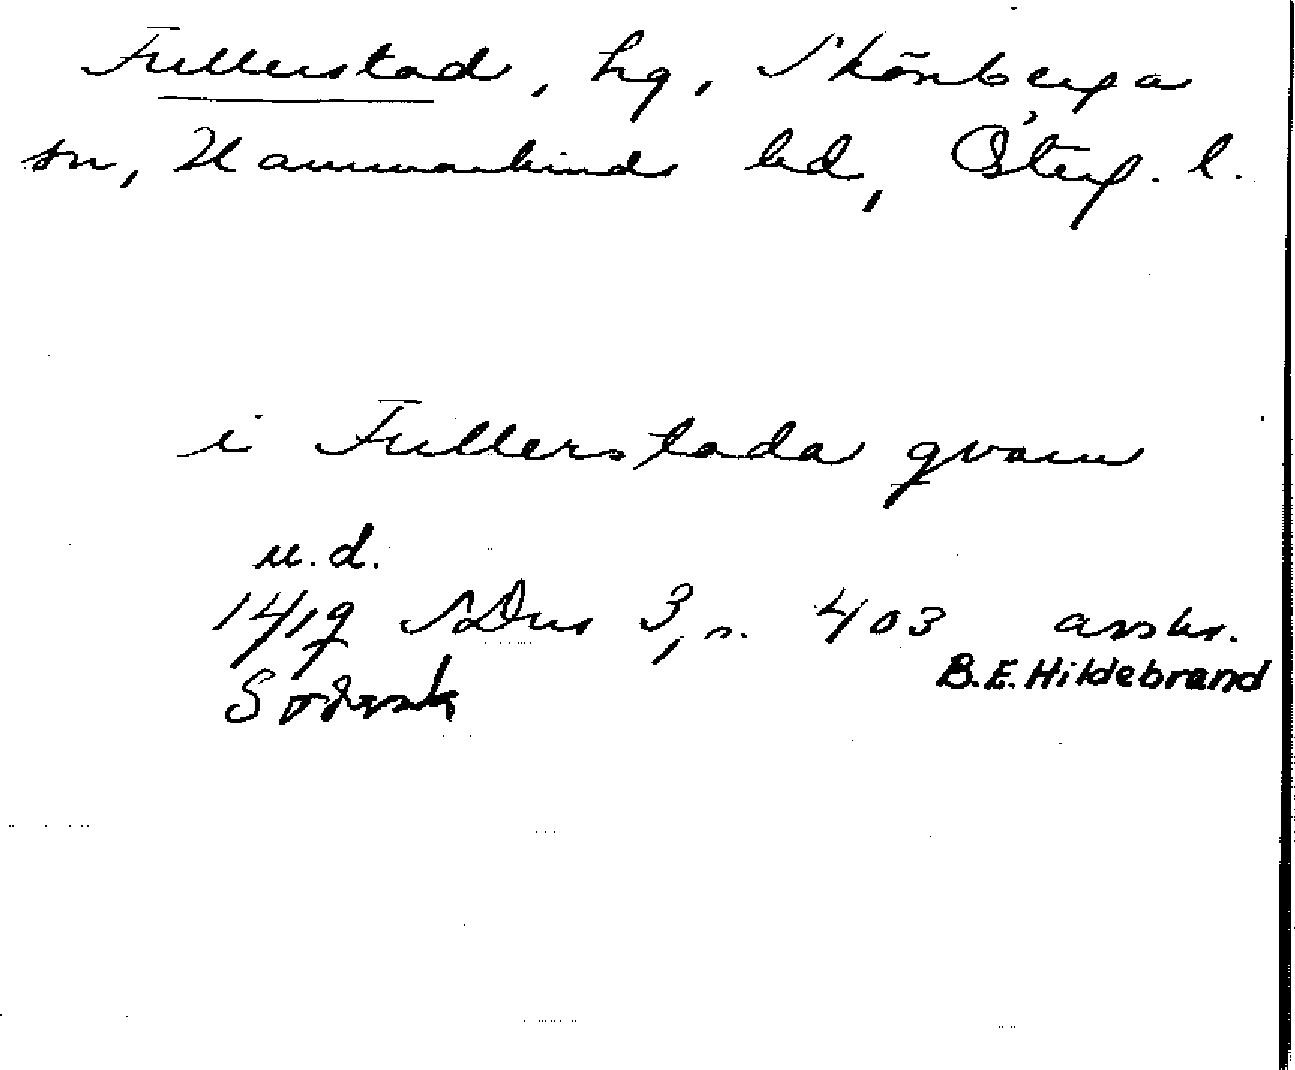 Fullerstad, hg, Skönberga
sn, Hammarkinds hd, Österg. l.
i Fullerstada qvarn
u.d.
1419 SDns 3, s. 403 avskr.
B.E. Hildebrand